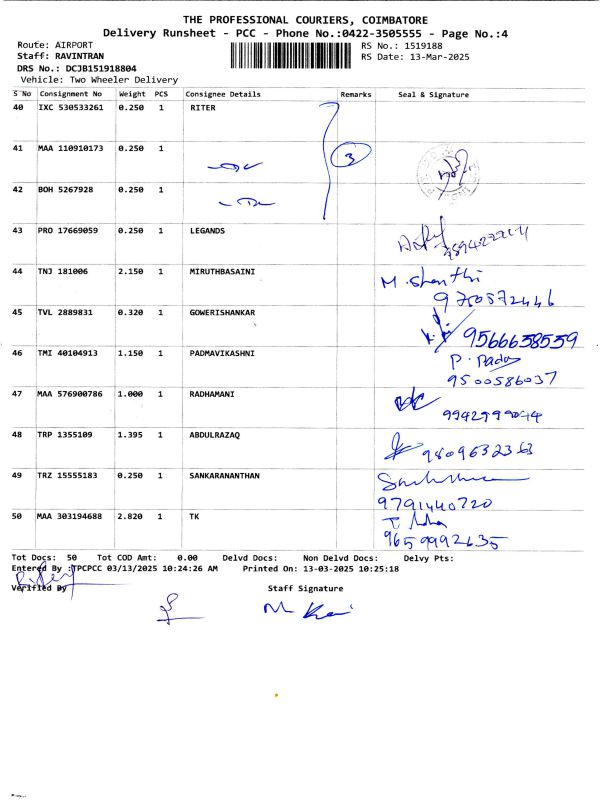 THE PROFESSIONAL COURIERS, COIMBATORE
Delivery Runsheet - PCC - Phone No.:0422-3505555 - Page No.:4
Route: AIRPORT RS No.: 1519188
Staff: RAVINTRAN RS Date: 13-Mar-2025
DRS No.: DCJB151918804
Vehicle: Two Wheeler Delivery
S No Consignment No Weight PCS Consignee Details Remarks Seal & Signature
40 IXC 530533261 0.250 1 RITER
41 MAA 110910173 0.250 1
3
42 BOH 5267928 0.250 1
43 PRO 17669059 0.250 1 LEGANDS
44 TNJ 181006 2.150 1 MIRUTHBASAINI M. Shanthi
45 TVL 2889831 0.320 1 GOWERISHANKAR
9566658559
46 TMI 40104913 1.150 1 PADMAVIKASHNI
9500586037
47 MAA 576900786 1.000 1 RADHAMANI
48 TRP 1355109 1.395 1 ABDULRAZAQ 9809632363
49 TRZ 15555183 0.250 1 SANKARANANTHAN
9791440720
50 MAA 303194688 2.820 1 TK
9659992635
Tot Docs: 50 Tot COD Amt: 0.00 Delvd Docs: Non Delvd Docs: Delvy Pts:
Entered By :TPCPCC 03/13/2025 10:24:26 AM Printed On: 13-03-2025 10:25:18
Verified By Staff Signature